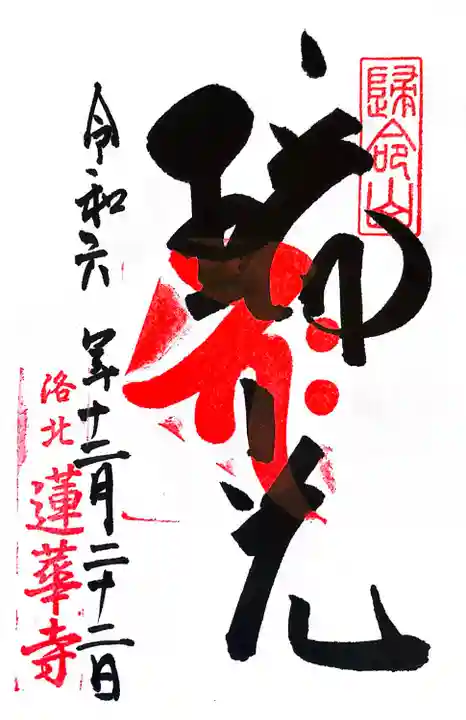 歸命山
瑞光
令和六年十二月二十二日
洛北
蓮華寺